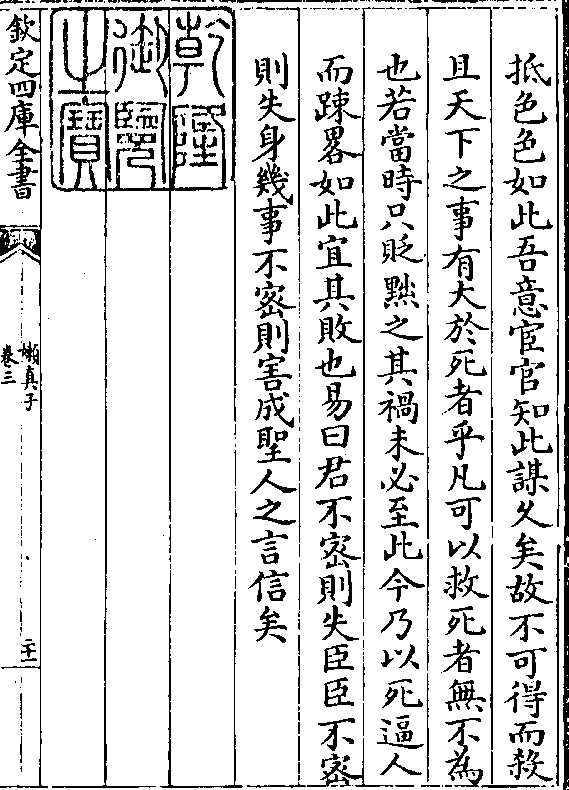 抵色色如此吾意宦官知此謀久矣故不可得而殺
且天下之事有大於死者乎凡可以救死者無不為
也若當時只貶黜之其禍未必至此今乃以死逼人
而踈畧如此宜其敗也易曰君不密則失臣臣不密
則失身幾事不密則害成聖人之言信矣
乾隆
御覽
之寶
欽定四庫全書
嬾真子
卷三
二十二